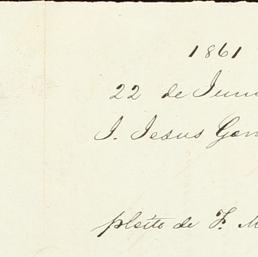 1861
22 de Juni
J. Jesus Gon
pleito de F. M